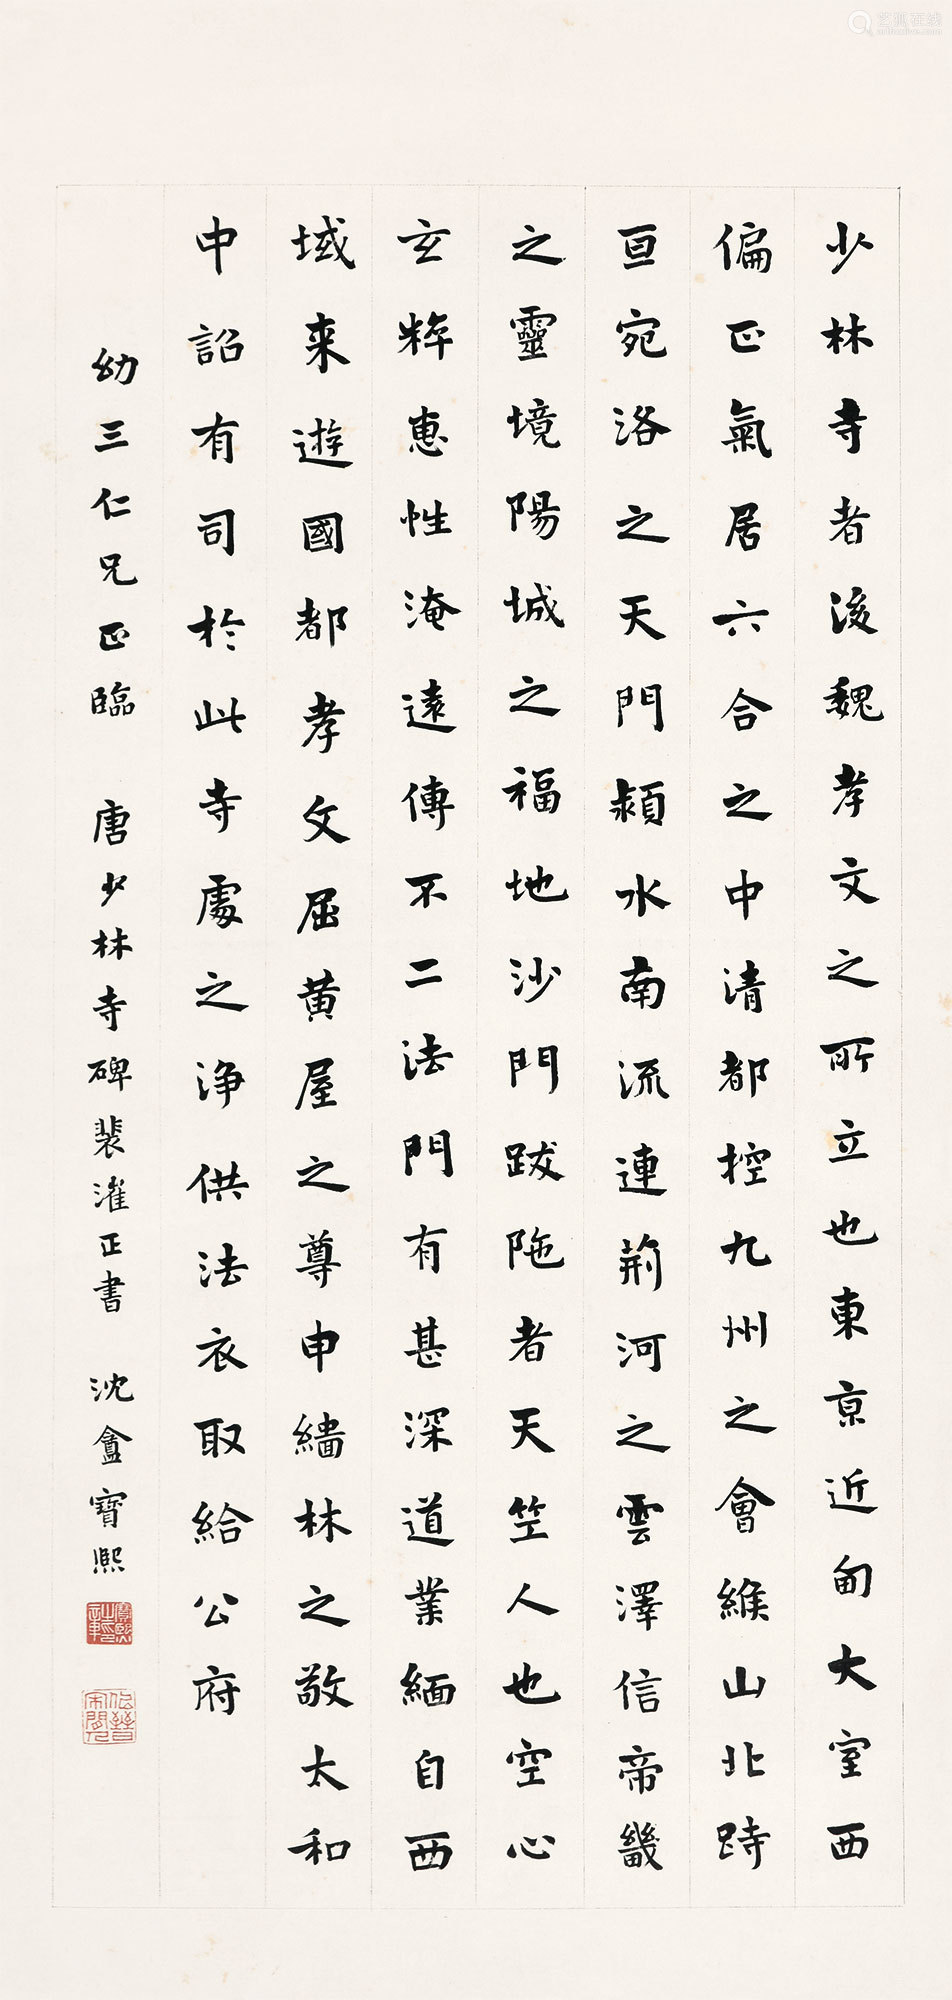 少林寺者後魏孝文之所立也東京近甸大室西
偏正氣居六合之中清都控九州之會維山北跱
亘宛洛之天門潁水南流連荊河之雲澤信帝畿
之靈境陽城之福地沙門跋陁者天竺人也空心
玄粹惠性淹遠傳不二法門有甚深道業緬自西
域来遊國都孝文屈黃屋之尊申繣林之敬太和
中詔有司於此寺處之淨供法衣取給公府
幼三仁兄正臨 唐少林寺碑裴漼正書 沈盦寶熙
艺狐在线
artfoxlive.com